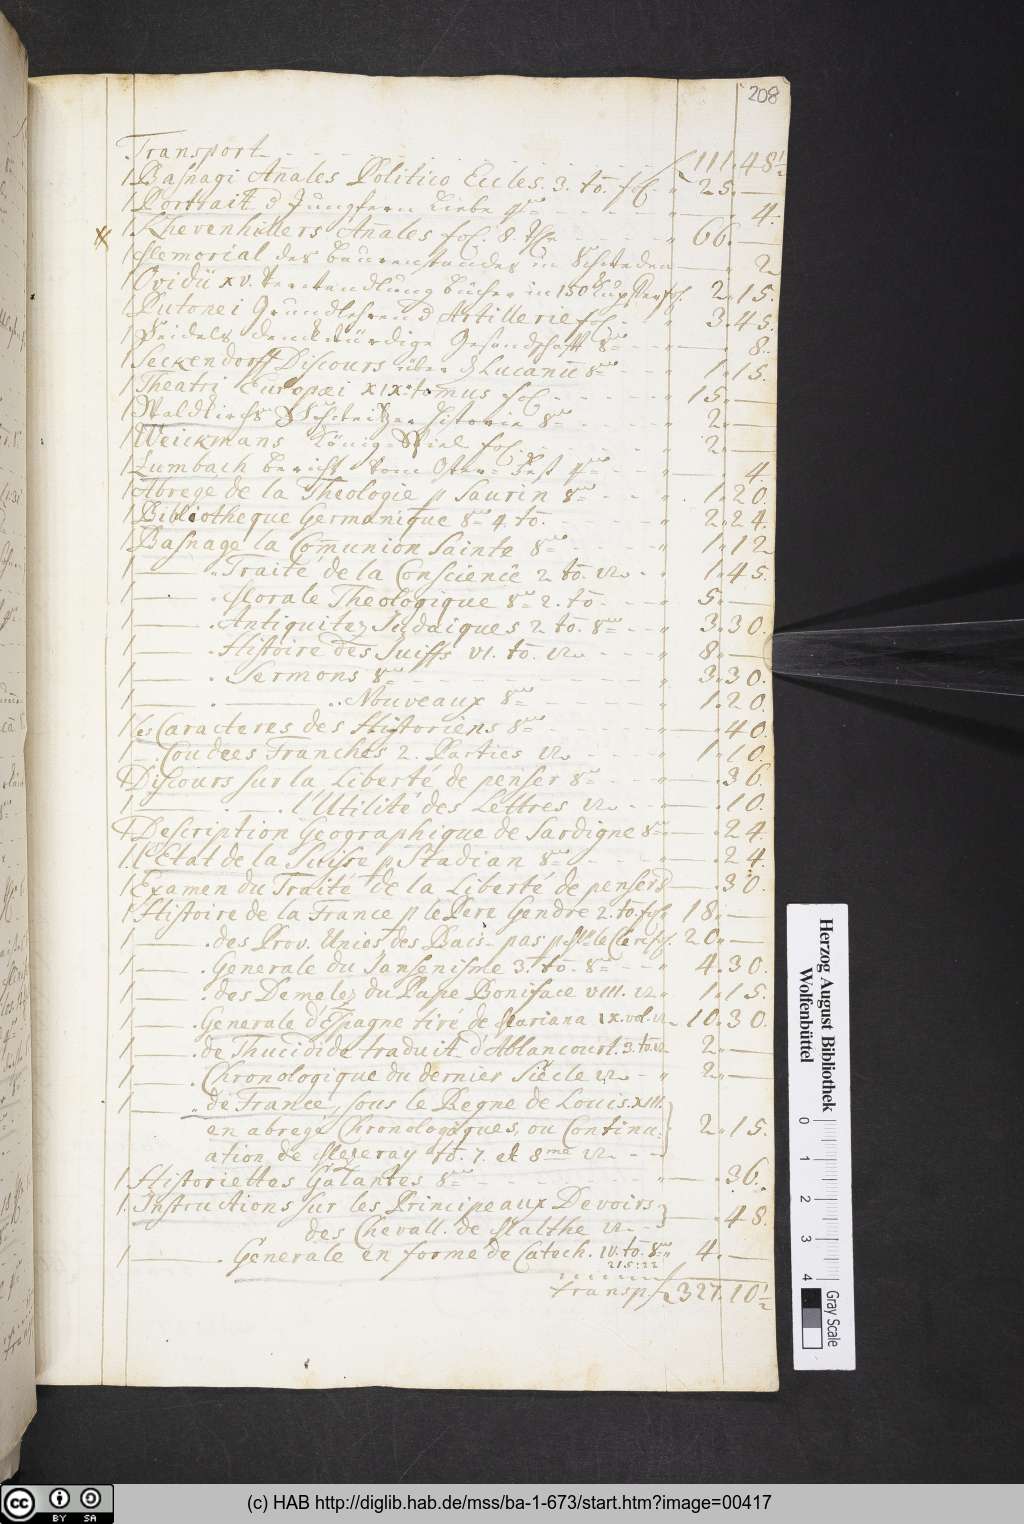 208
Transport - - - 111. 48½
1 Basnagi Anales Politico Eccles. 3. to. fol. " 25. —
1 Portrait d Jungfern Liebe — " 4.
1 Khevenhüllers Anales fol. 8. " 66. —
1 Memorial des Baurenstandes in Schweden — " 2
1 Ovidii XV. Verwandlung Bücher in 150 Kupffer fol. 2. 15.
1 Putonei Grundlehren d Artillerie fol. " 3. 45.
1 Seidels denckwürdige Gesandschafft 8vo — 8.
1 Seckendorff Discours über d Lucanũ 8vo " 1. 15.
1 Theatri Europæi XIX. tomus fol. " 15. —
1 Waldkirchs Schweitzer Historie 8vo " 2. —
1 Weickmans König-Spiel fol. " 2. —
1 Lumbach bericht vom Oster-Fest — " 4.
1 Abregé de la Theologie p Saurin 8vo " 1. 20.
1 Bibliotheque Germanique 8vo 4. to. " 2. 24.
1 Basnage la Comunion Sainte 8vo " 1. 12
1 — Traité de la Conscience 2 to. 12o " 1. 45.
1 — Morale Theologique 8vo 2. to. " 5. —
1 — Antiquitez Judaiques 2 to. 8vo " 3. 30.
1 — Histoire des Juiffs VI. to. 12o " 8. —
1 — Sermons 8vo " 3. 30.
1 — — Nouveaux 8vo " 1. 20.
1 les Caracteres des Historiens 8vo " — 40.
1 — Coudees Franches 2. Parties 12o " 1. 10.
1 Discours sur la Liberté de penser 8vo " — 36.
1 — — l'Utilité des Lettres 12o " — 10.
1 Description Geographique de Sardigne 8vo " — 24.
1 l'Etat de la Suisse p Stadian 8vo " — 24.
1 Examen du Traité de la Liberté de penser — 30.
1 Histoire de la France p le Pere Gendre 2. to. fol. 18. —
1 — des Prov. Unies des Pais-pas p le Clerc fol. 20. —
1 — Generale du Jansenisme 3. to. 8vo " 4. 30.
1 — des Demelez du Pape Boniface VIII. 12o 1. 15.
— Generale d'Espagne tiré de Mariana IX. vol. 12. 10. 30.
1 — de Thucidide traduit d'Ablancourt. 3. to. 12 2. —
1 — Chronologique du dernier Siécle 12o " 2. —
1 — de France, sous le Regne de Louis XIII.
en abregé Chronologiques, ou Continu- 2. 15.
ation de Mezeray to. 7. et 8me 12o
1 Historiettes Galantes 8vo — 36.
1 Instructions sur les Principeaux Devoirs
des Chevall. de Malthe 12o — 48.
1 — Generale en forme de Catech. IV. to. 8vo 4. —
21.5:22
transp 327. 10½
Herzog August Bibliothek
Wolfenbüttel
0 1 2 3 4
Gray Scale
cc BY SA
(c) HAB http://diglib.hab.de/mss/ba-1-673/start.htm?image=00417